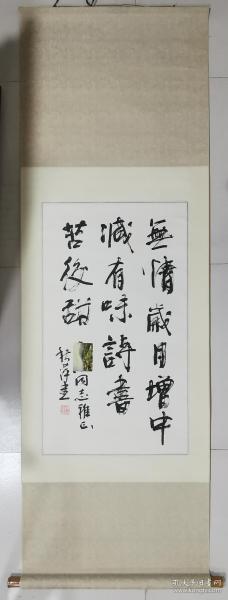 無情歲月增中
減有味詩書
苦後甜
同志雅正
孔夫子旧书网